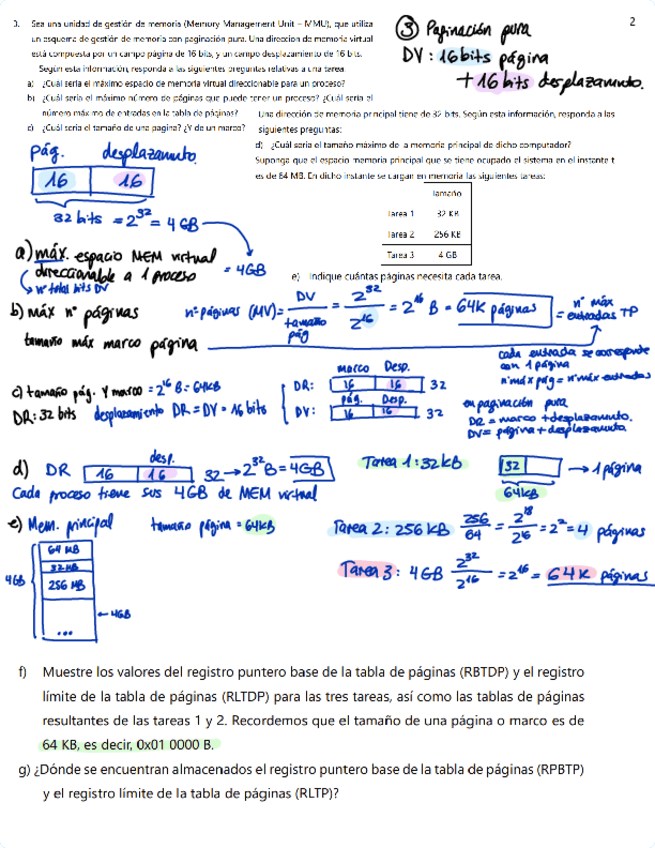 2
3. Sea una unidad de gestión de memoria (Memory Management Unit – MMU), que utiliza
un esquema de gestión de memoria con paginación pura. Una dirección de memoria virtual
está compuesta por un campo página de 16 bits, y un campo desplazamiento de 16 bits.
Según esta información, responda a las siguientes preguntas relativas a una tarea
a) ¿Cuál sería el máximo espacio de memoria virtual direccionable para un proceso?
b) ¿Cuál sería el máximo número de páginas que puede tener un proceso? ¿Cuál sería el
número máximo de entradas en la tabla de páginas?
c) ¿Cuál sería el tamaño de una página? ¿Y de un marco?
③ Paginación pura
DV: 16 bits página
+ 16 bits desplazamiento.
Una dirección de memoria principal tiene de 32 bits. Según esta información, responda a las
siguientes preguntas:
d) ¿Cuál sería el tamaño máximo de la memoria principal de dicho computador?
Suponga que el espacio memoria principal que se tiene ocupado el sistema en el instante t
es de 64 MB. En dicho instante se cargan en memoria las siguientes tareas:
Tamaño
Tarea 1 32 KB
Tarea 2 256 KB
Tarea 3 4 GB
e) Indique cuántas páginas necesita cada tarea.
Pág. desplazamiento
16 16
32 bits = 2^32 = 4 GB
a) máx. espacio MEM virtual
direccionable a 1 proceso = 4GB
nº total bits DV
b) máx nº páginas nº páginas (MV) = DV / tamaño pág = 2^32 / 2^16 = 2^16 B = 64K páginas = nº máx entradas TP
tamaño máx marco página
cada entrada se corresponde
con 1 página
nº máx pág = nº máx entradas
c) tamaño pág. y marco = 2^16 B = 64KB
DR: 32 bits desplazamiento DR = DV = 16 bits
Marco Desp.
DR: 16 16 32
Pág. Desp.
DV: 16 16 32
en paginación pura
DR = marco + desplazamiento.
DV = página + desplazamiento
d) DR 16 desp. 16 32 → 2^32 B = 4GB
Cada proceso tiene sus 4GB de MEM virtual
Tarea 1: 32 kB 32 → 1 página
64kB
e) Mem. principal tamaño página = 64KB
64 MB
32 MB
256 MB
...
4GB
← 4GB
Tarea 2: 256 kB 256/64 = 2^18/2^16 = 2^2 = 4 páginas
Tarea 3: 4GB 2^32/2^16 = 2^16 = 64K páginas
f) Muestre los valores del registro puntero base de la tabla de páginas (RBTDP) y el registro
límite de la tabla de páginas (RLTDP) para las tres tareas, así como las tablas de páginas
resultantes de las tareas 1 y 2. Recordemos que el tamaño de una página o marco es de
64 KB, es decir, 0x01 0000 B.
g) ¿Dónde se encuentran almacenados el registro puntero base de la tabla de páginas (RPBTP)
y el registro límite de la tabla de páginas (RLTP)?